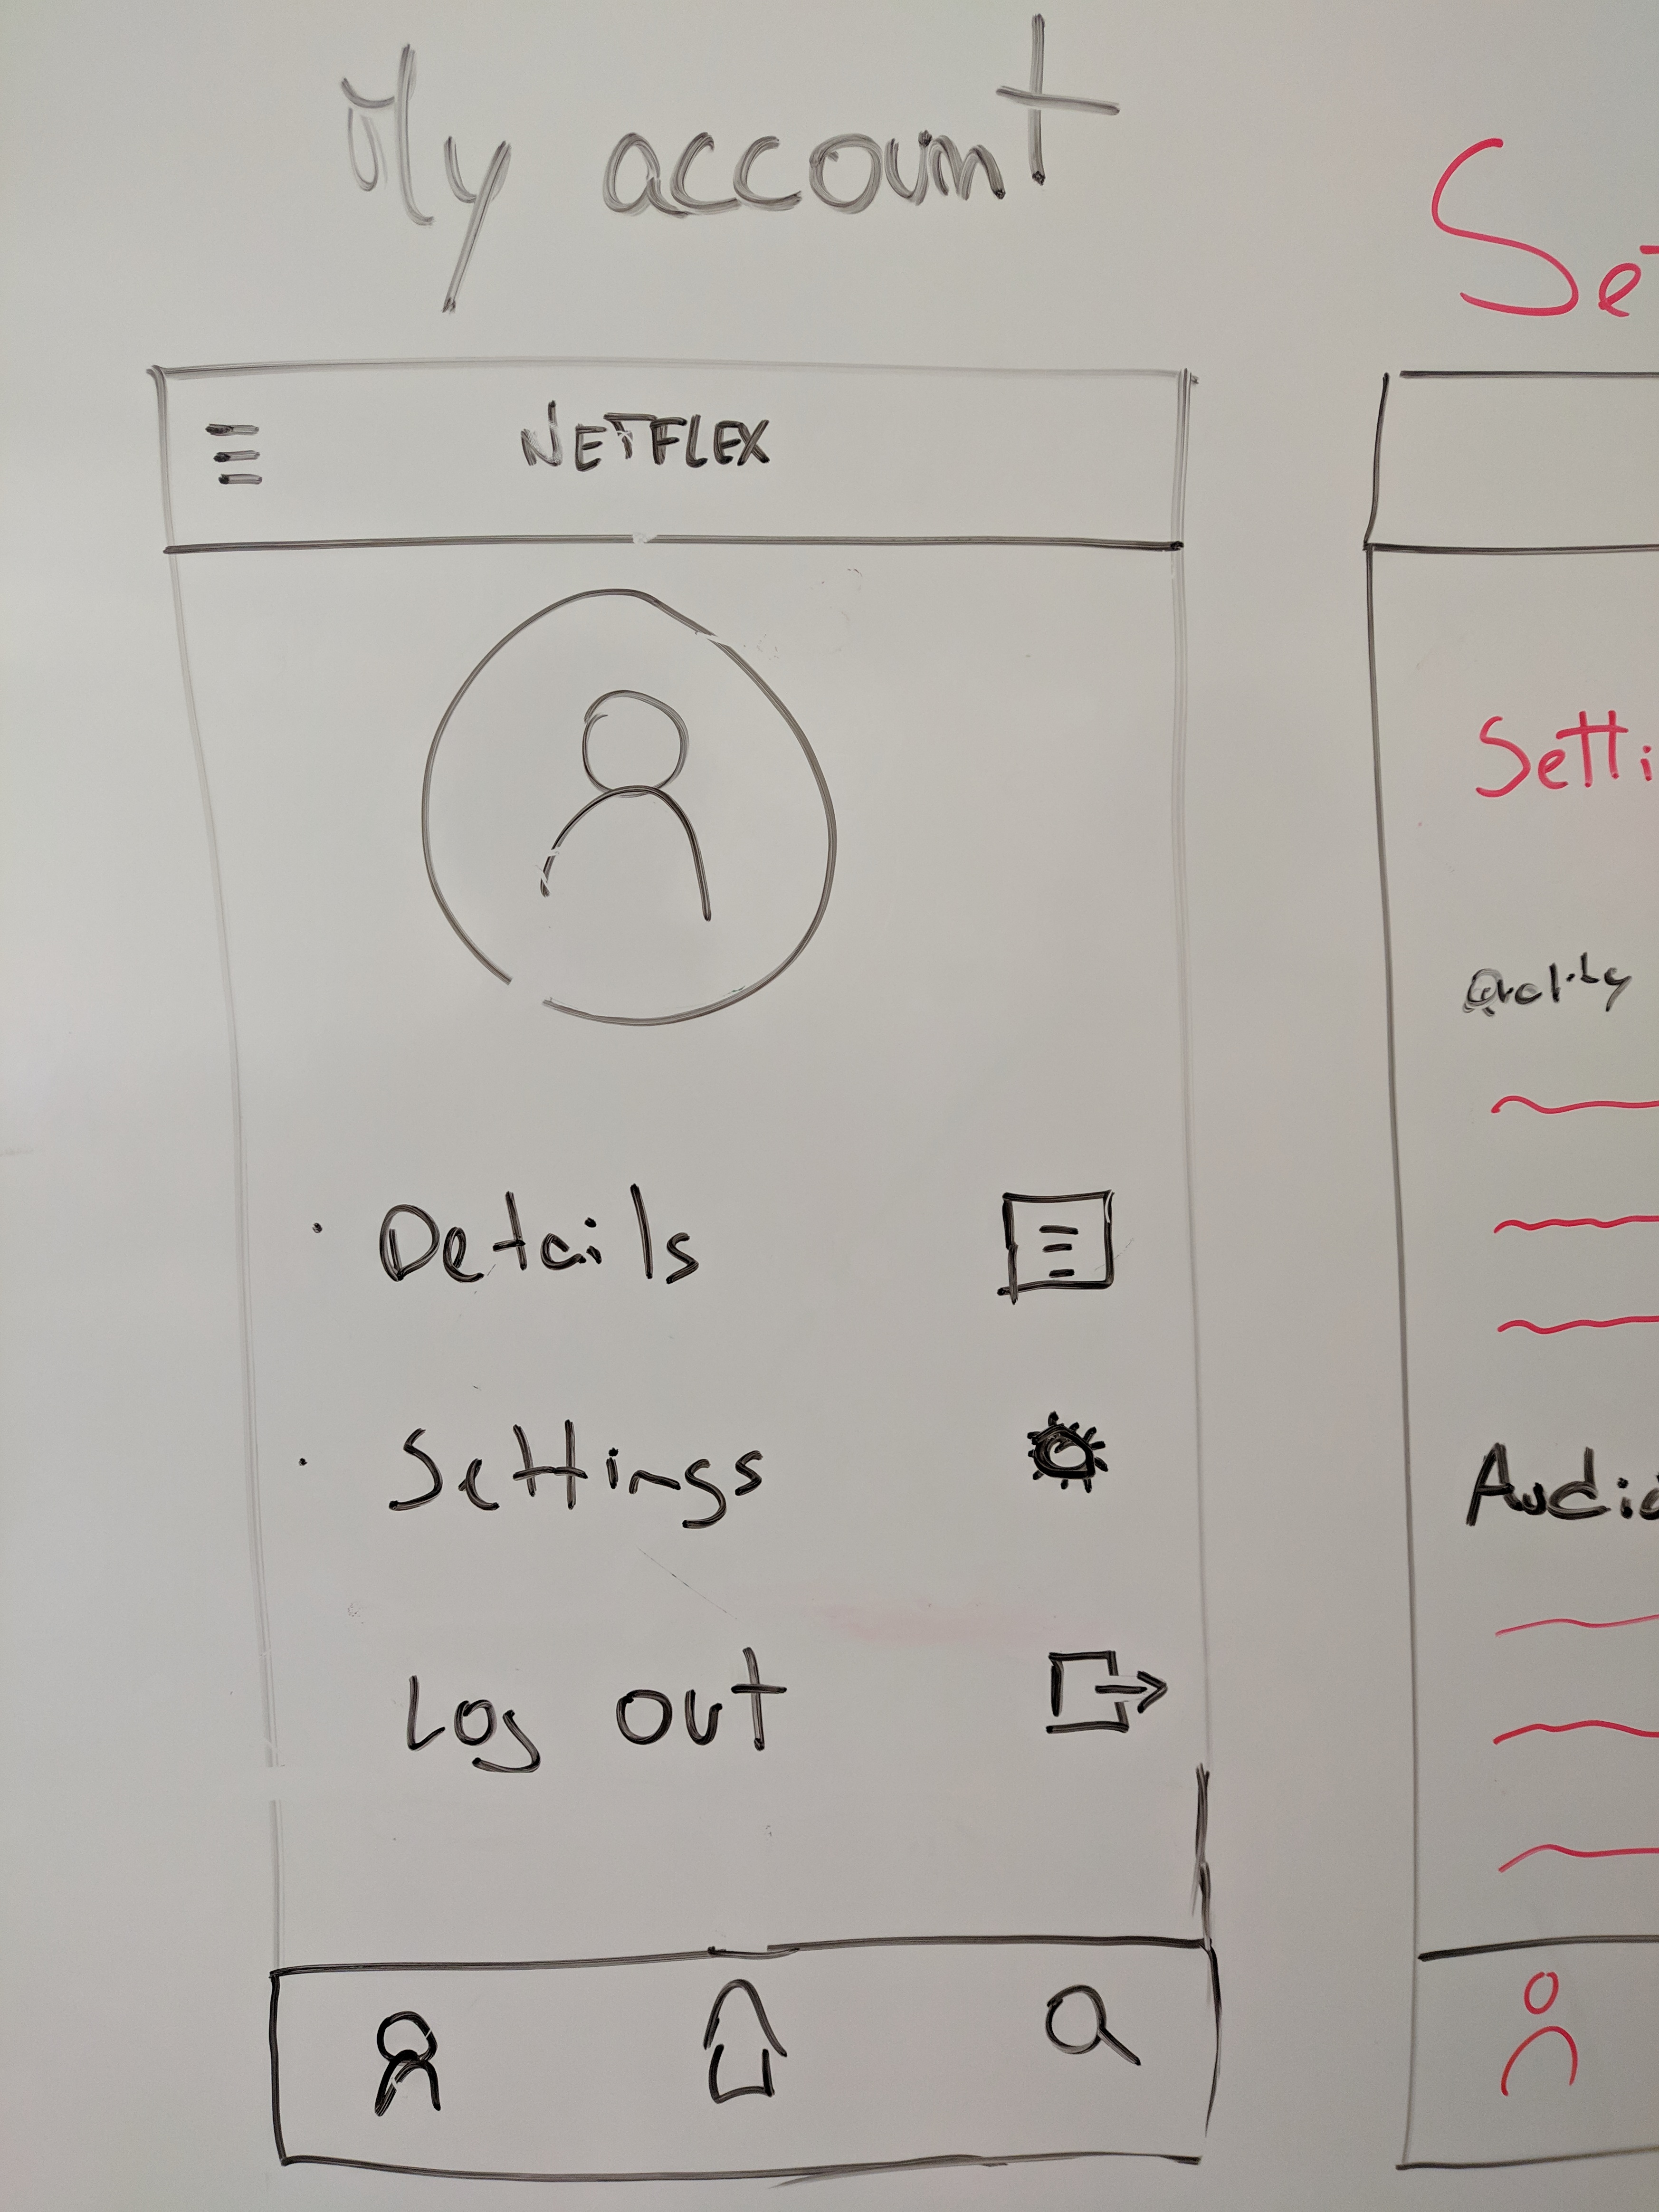 My account
NETFLEX
Details
Settings
Log out
Se
Setti
Quality
Audio